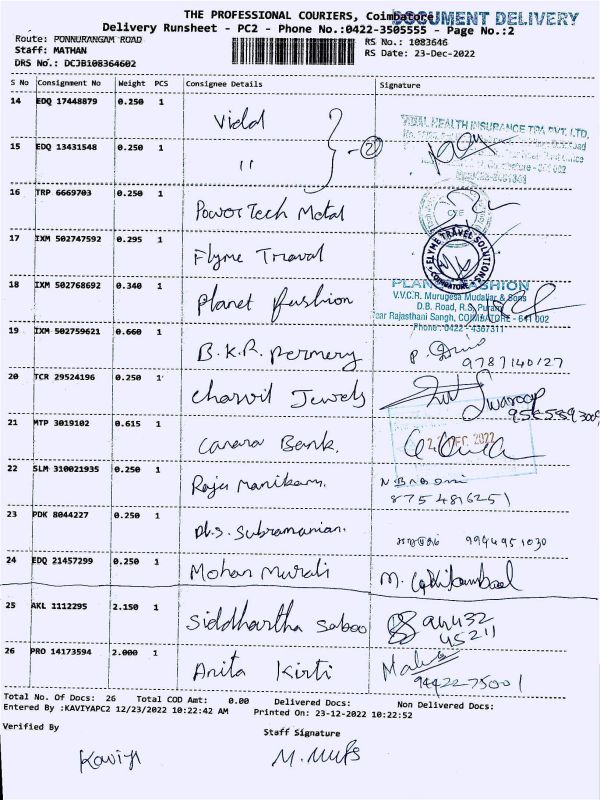 THE PROFESSIONAL COURIERS, Coimbatore
DOCUMENT DELIVERY
Delivery Runsheet - PC2 - Phone No.:0422-3505555 - Page No.:2
Route: PONNURANGAM ROAD
RS No.: 1083646
Staff: MATHAN
RS Date: 23-Dec-2022
DRS No.: DCJB108364602
S No Consignment No Weight PCS Consignee Details Signature
14 EDQ 17448879 0.250 1 Vidal
VIDAL HEALTH INSURANCE TPA PVT. LTD.
15 EDQ 13431548 0.250 1 " - 2
16 TRP 6669703 0.250 1 PowerTech Metal
17 IXM 502747592 0.295 1 Flyme Traval
FLYME TRAVEL SOLUTIONS
COIMBATORE
18 IXM 502768692 0.340 1 Planet fashion
PLANET FASHION
V.V.C.R. Murugesa Mudaliar & Sons
D.B. Road, R.S. Puram
Near Rajasthani Sangh, COIMBATORE - 641 002
Phone: 0422 - 4367311
19 IXM 502759621 0.660 1 B.K.R. Permery
9787140127
20 TCR 29524196 0.250 1 Charvil Jewels
Swaroop
21 MTP 3019102 0.615 1 Canara Bank.
DEC 2022
22 SLM 310021935 0.250 1 Raju Manikam.
8754816251
23 PDK 8044227 0.250 1 Subramanian.
9944951030
24 EDQ 21457299 0.250 1 Mohan Murali
25 AKL 1112295 2.150 1 Siddhartha Saboo
45211
26 PRO 14173594 2.000 1 Anita Kirti
9442275001
Total No. Of Docs: 26 Total COD Amt: 0.00 Delivered Docs: Non Delivered Docs:
Entered By :KAVIYAPC2 12/23/2022 10:22:42 AM Printed On: 23-12-2022 10:22:52
Verified By
Staff Signature
Kaviya